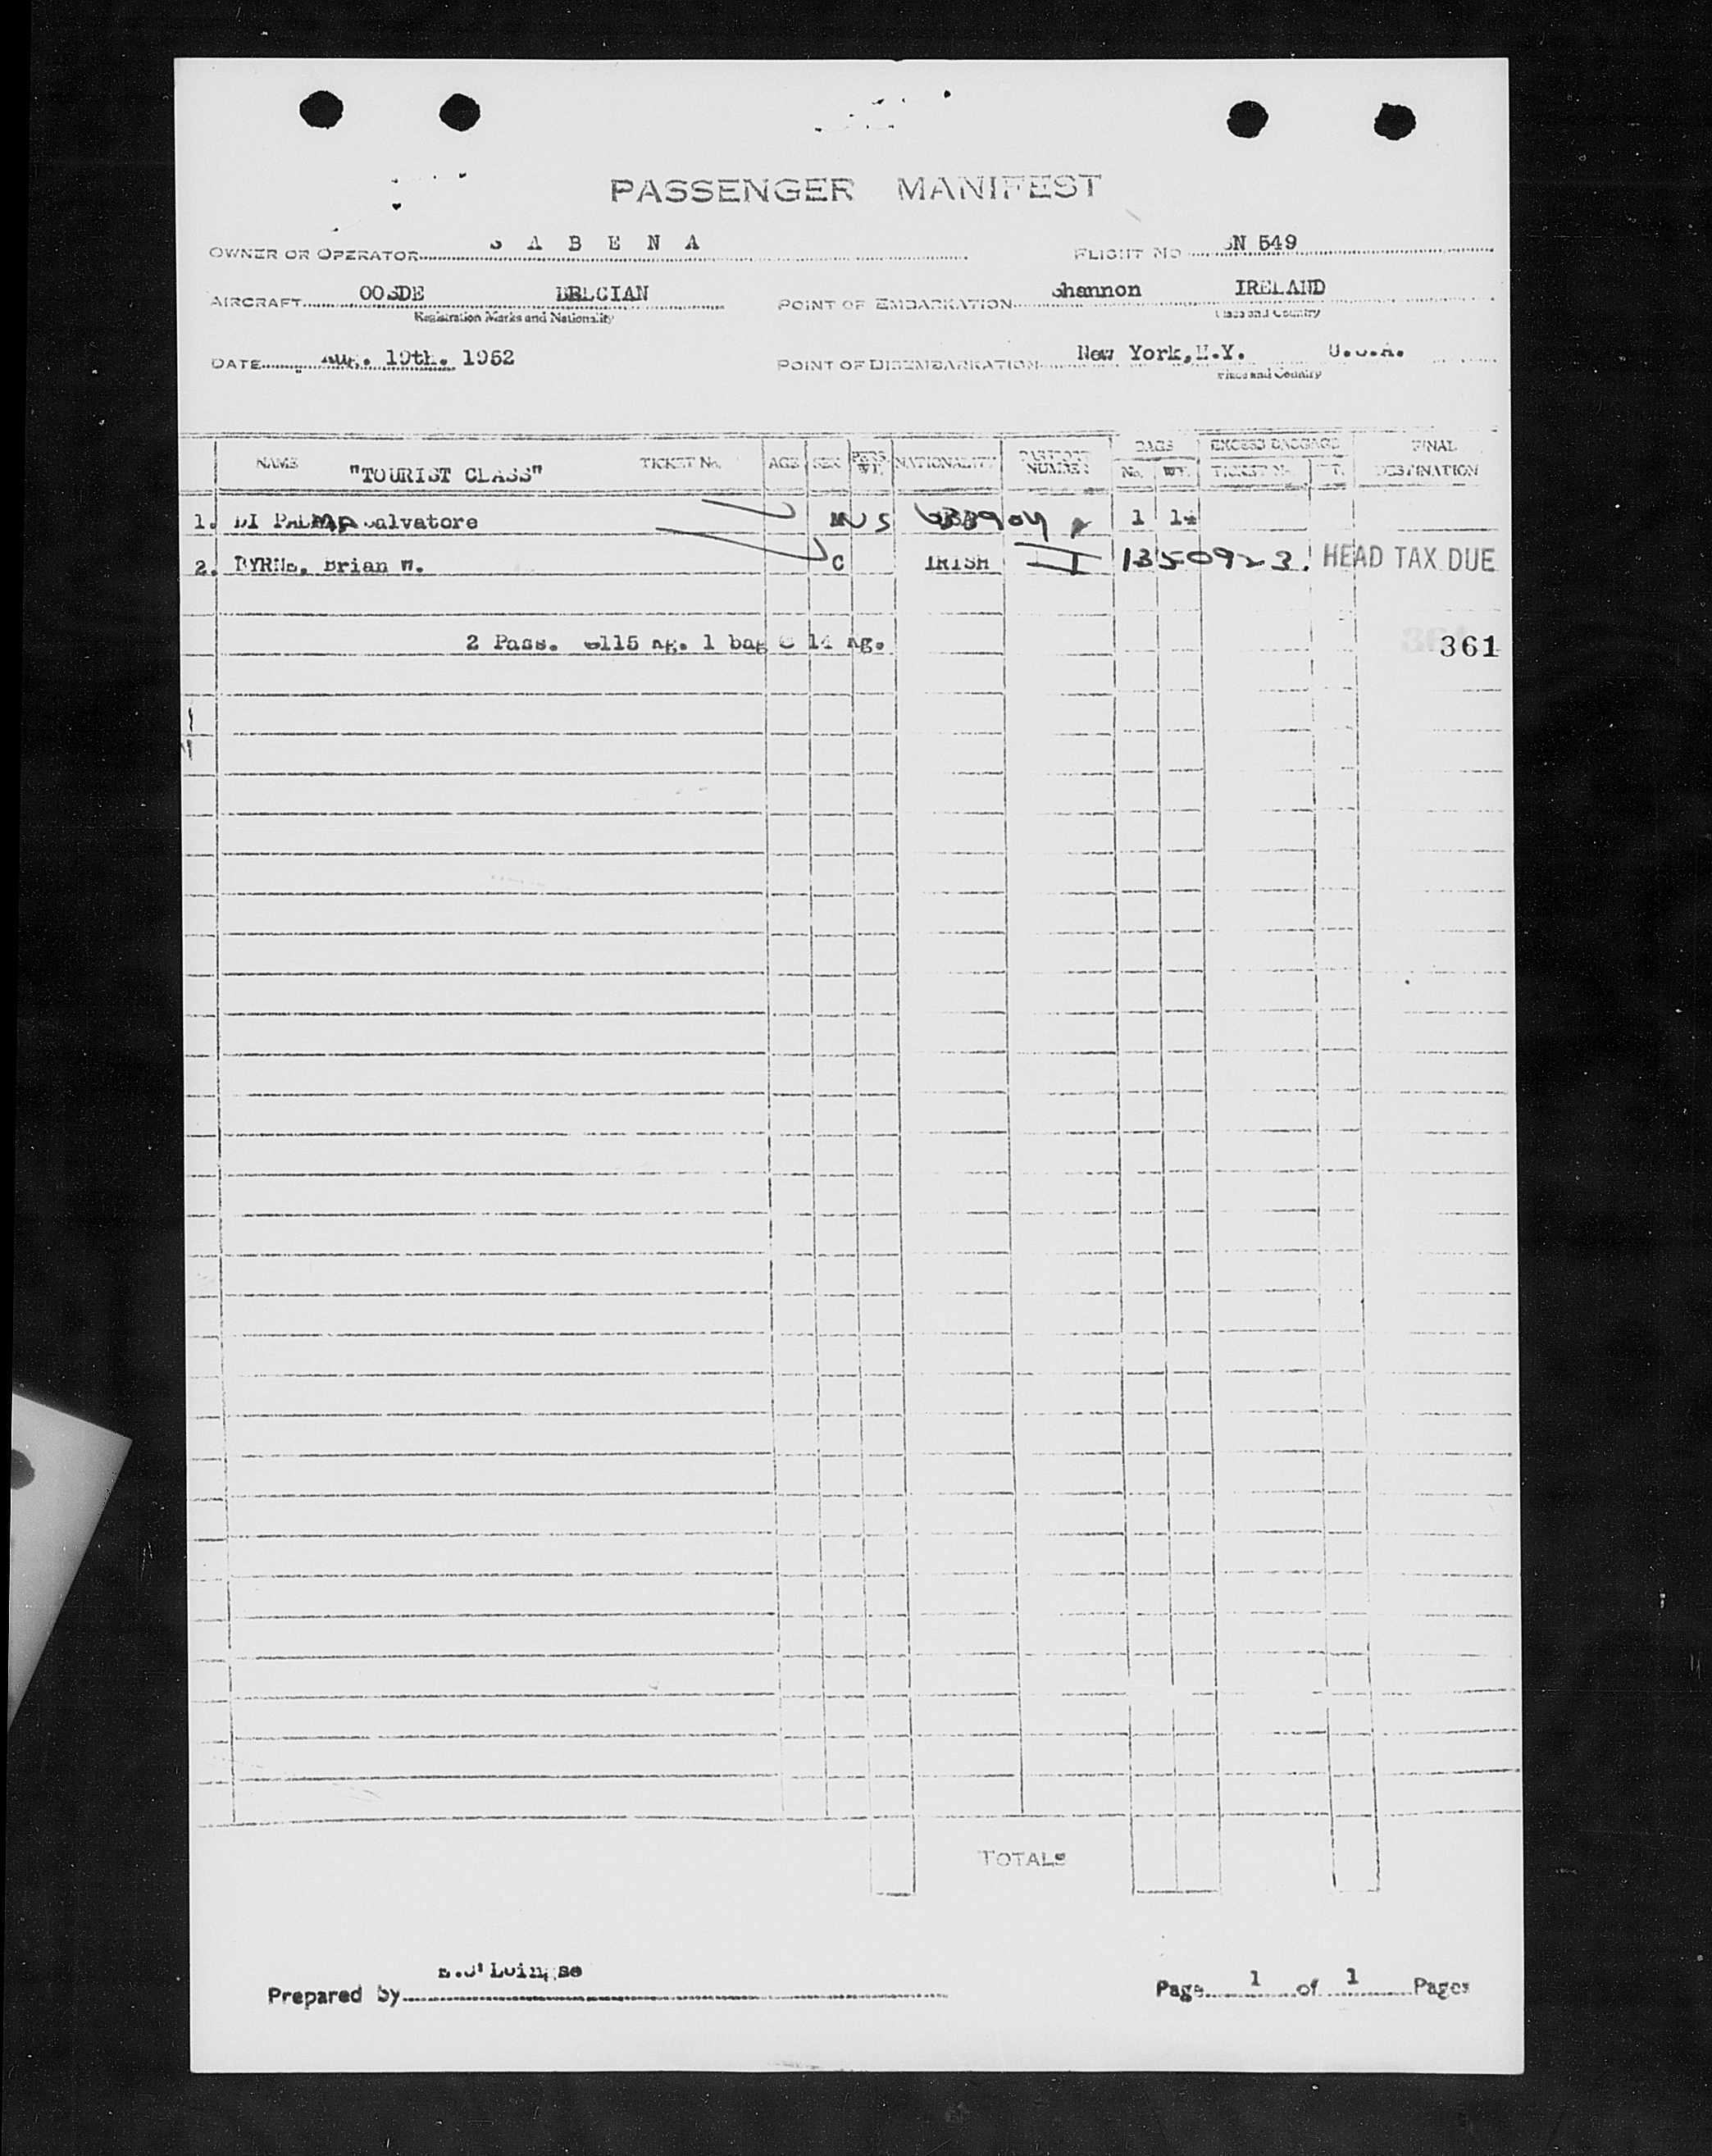 PASSENGER MANIFEST
OWNER OR OPERATOR S A B E N A FLIGHT NO SN 549
AIRCRAFT OOSDE BELGIAN POINT OF EMBARKATION Shannon IRELAND
Registration Marks and Nationality Place and Country
DATE Aug. 19th. 1952 POINT OF DISEMBARKATION New York, N.Y. U.S.A.
Place and Country
NAME "TOURIST CLASS" TICKET No. AGE SEX PERS. WT. NATIONALITY PASSPORT NUMBER BAGS No. WT. EXCESS BAGGAGE TICKET No. WT. FINAL DESTINATION
1. DI PALMA Salvatore M US 1 14
2. BYRNE, Brian W. C IRISH I 1350923. HEAD TAX DUE
2 Pass. 115 kg. 1 bag 14 kg.
361
TOTALS
Prepared by
Page 1 of 1 Pages